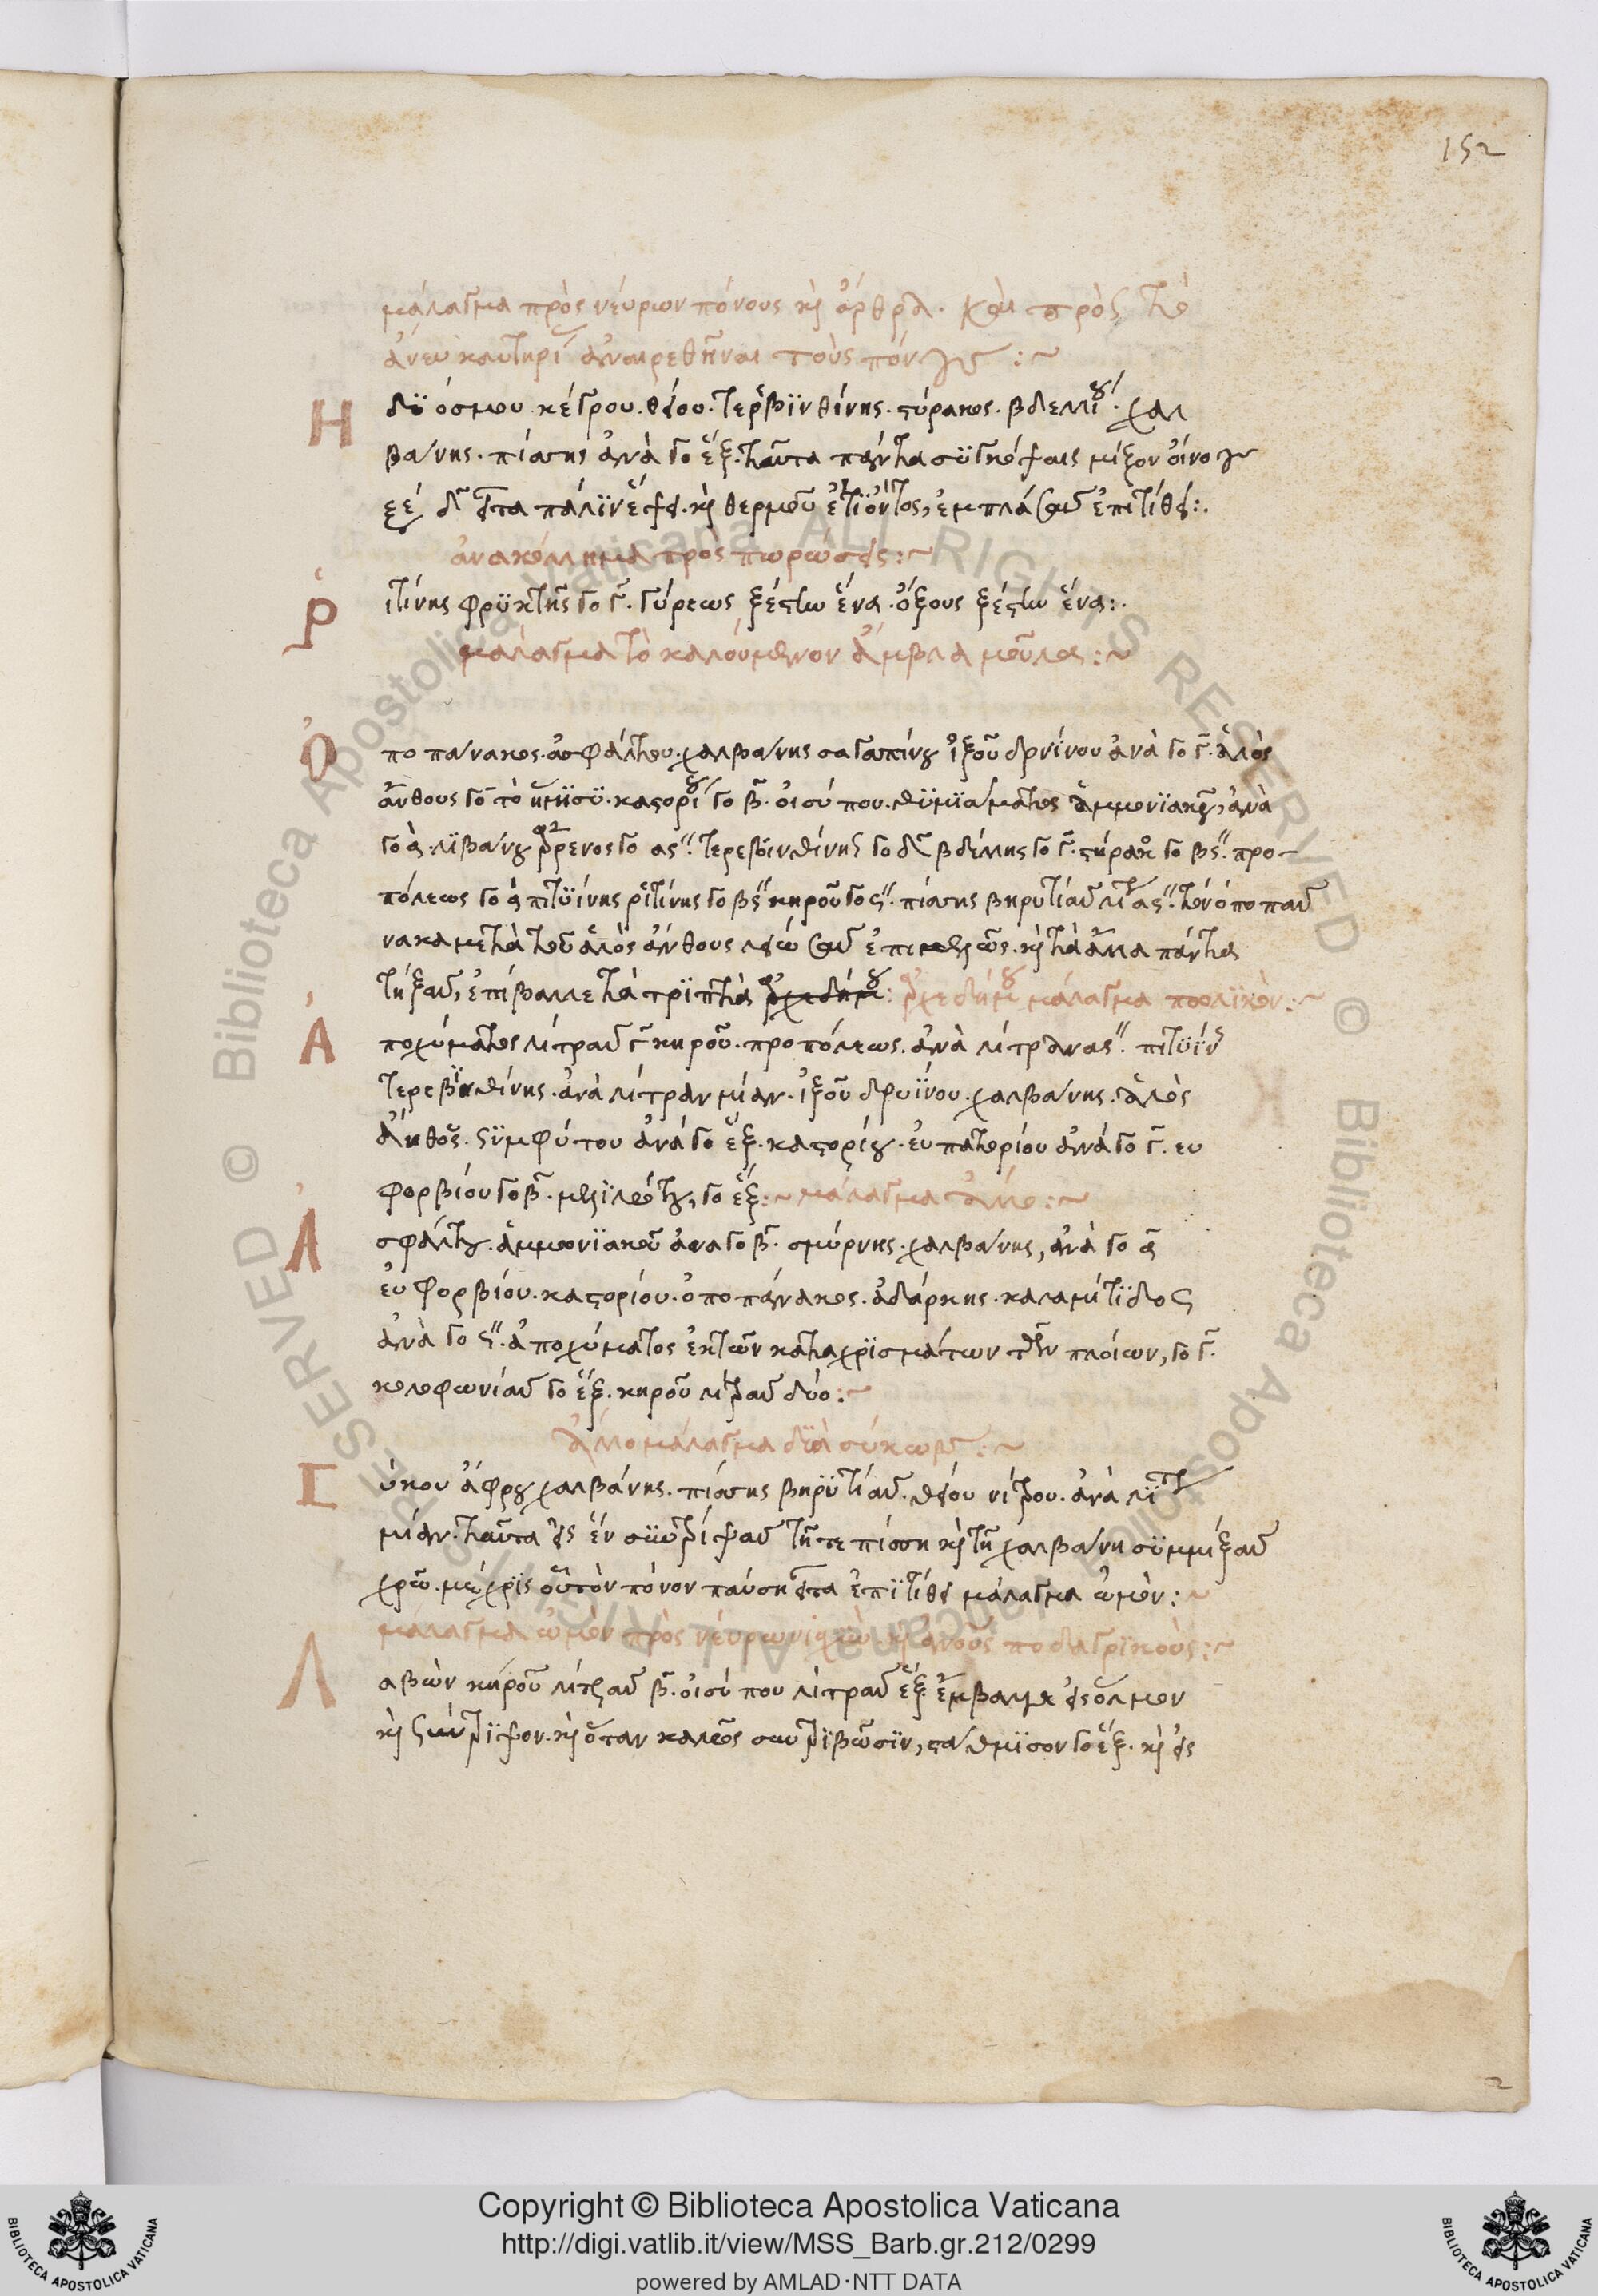 152
μάλαγμα πρὸς νέυρων πόνους κὶ ἄρθρα. καὶ πρὸς τὸ
ἄνευ καυτηρί ἀναιρεθῆναι τοὺς πόνους :~
Η δϋόσμου κέδρου. θείου. τερβϊνθίνης. στύρακος. βδελλίου. χαλ
βάνης. πίσσης ἀνὰ γο ἕξ. ταῦτα πάντα σϋγκόψαις μίξον οἴνο
ξέ δ εἶτα πάλϊν ἕψει. κὶ θερμοῦ ὄντος, ἐμπλάσας ἐπιτίθει:.
ἀνακόλλημα πρὸς πωρώσεις:~
Ρ ἱτίνης φρϋκτῆς γο γ. γύρεως ξέστω ἕνα. ὄξους ξέστω ἕνα:.
μάλαγμα τὸ καλούμενον ἄμβλα μοῦλα:~
Ὀ ποπάνακος. ἀσφάλτου. χαλβάνης σαγαπίνου ἰξοῦ δρυΐνου ἀνὰ γο γ. ἁλὸς
ἄνθους γο τὸ ἥμϊσϋ. καστορίου γο β. οἰσύπου. θϋμϊάματος ἀμμονϊακοῦ, ἀνὰ
γο α. λϊβάνου ἄρρενος γο ας''. τερεβϊνθίνης γο δ βδέλλης γο γ. στύρακος γο βς''. προ-
πόλεως γο α πιτϋίνης ῥϊτίνης γο βς'' κηροῦ γο ς''. πίσσης βηρυτίας λι ας''. τὸν ὀποπα
νακα μετὰ τοῦ ἁλὸς ἄνθους λειώσας ἐπιμελῶς. κὶ τὰ ἄλλα πάντα
τήξας, ἐπίβαλλε τὰ τρϊπτὰ ἀρχεδήμου: ἀρχεδήμου μάλαγμα πωλϊκὸν:~
Ἀ ποχύματος λίτρας γ κηροῦ. προπόλεως. ἀνὰ λίτραν ας''. πιτϋΐν
τερεβϊνθίνης. ἀνὰ λίτραν μίαν. ἰξοῦ δρυΐνου. χαλβάνης. ἁλὸς
ἄνθος. σϋμφύτου ἀνὰ γο ἕξ. καστορίου. ἐυπατορίου ἀνὰ γο γ. ευ
φορβίου γο β. μελϊλώτου, γο ἕξ:~ μάλαγμα ἄλλο:~
Ἀ σφάλτου. ἀμμονϊακοῦ ἀνα γο β. σμύρνης. χαλβάνης, ἀνὰ γο α
ἐυφορβίου. καστορίου. ὀποπάνακος. ἀδάρκης. καλαμίτϊδος
ἀνὰ γο ς''. ἀποχύματος ἐκ τῶν καταχρϊσμάτων τῶν πλοίων, γο γ.
κολοφωνίας γο ἕξ. κηροῦ λίτρας δύο:~
ἄλλο μάλαγμα δϊὰ σύκων :~
Σ ύκου ἀφρου χαλβάνης. πίσσης βηρϋτίας. θείου νίτρου. ἀνὰ λϊτ
μίαν. ταῦτα εἰς ἓν σϋντρίψας τῆ τε πίσση κὶ τῆ χαλβάνη σϋμμίξας
χρῶ. μέχρϊς οὗ τὸν πόνον παύση εἶτα ἐπϊτίθει μάλαγμα ὠμὸν:~
μάλαγμα ὠμὸν πρὸς νέυρων κὶ ἀνοὺς ποδαγρϊκοὺς:~
Λ αβὼν κηροῦ λίτρας β. οἰσύπου λίτρας ἕξ. ἔμβαλλε εἰς ὅλμον
κὶ σύντρϊψον. κὶ ὅταν καλῶς συντρϊβῶσϊν, στάθμϊσον γο ἕξ. κὶ εἰς
2
Copyright © Biblioteca Apostolica Vaticana
http://digi.vatlib.it/view/MSS_Barb.gr.212/0299
powered by AMLAD·NTT DATA